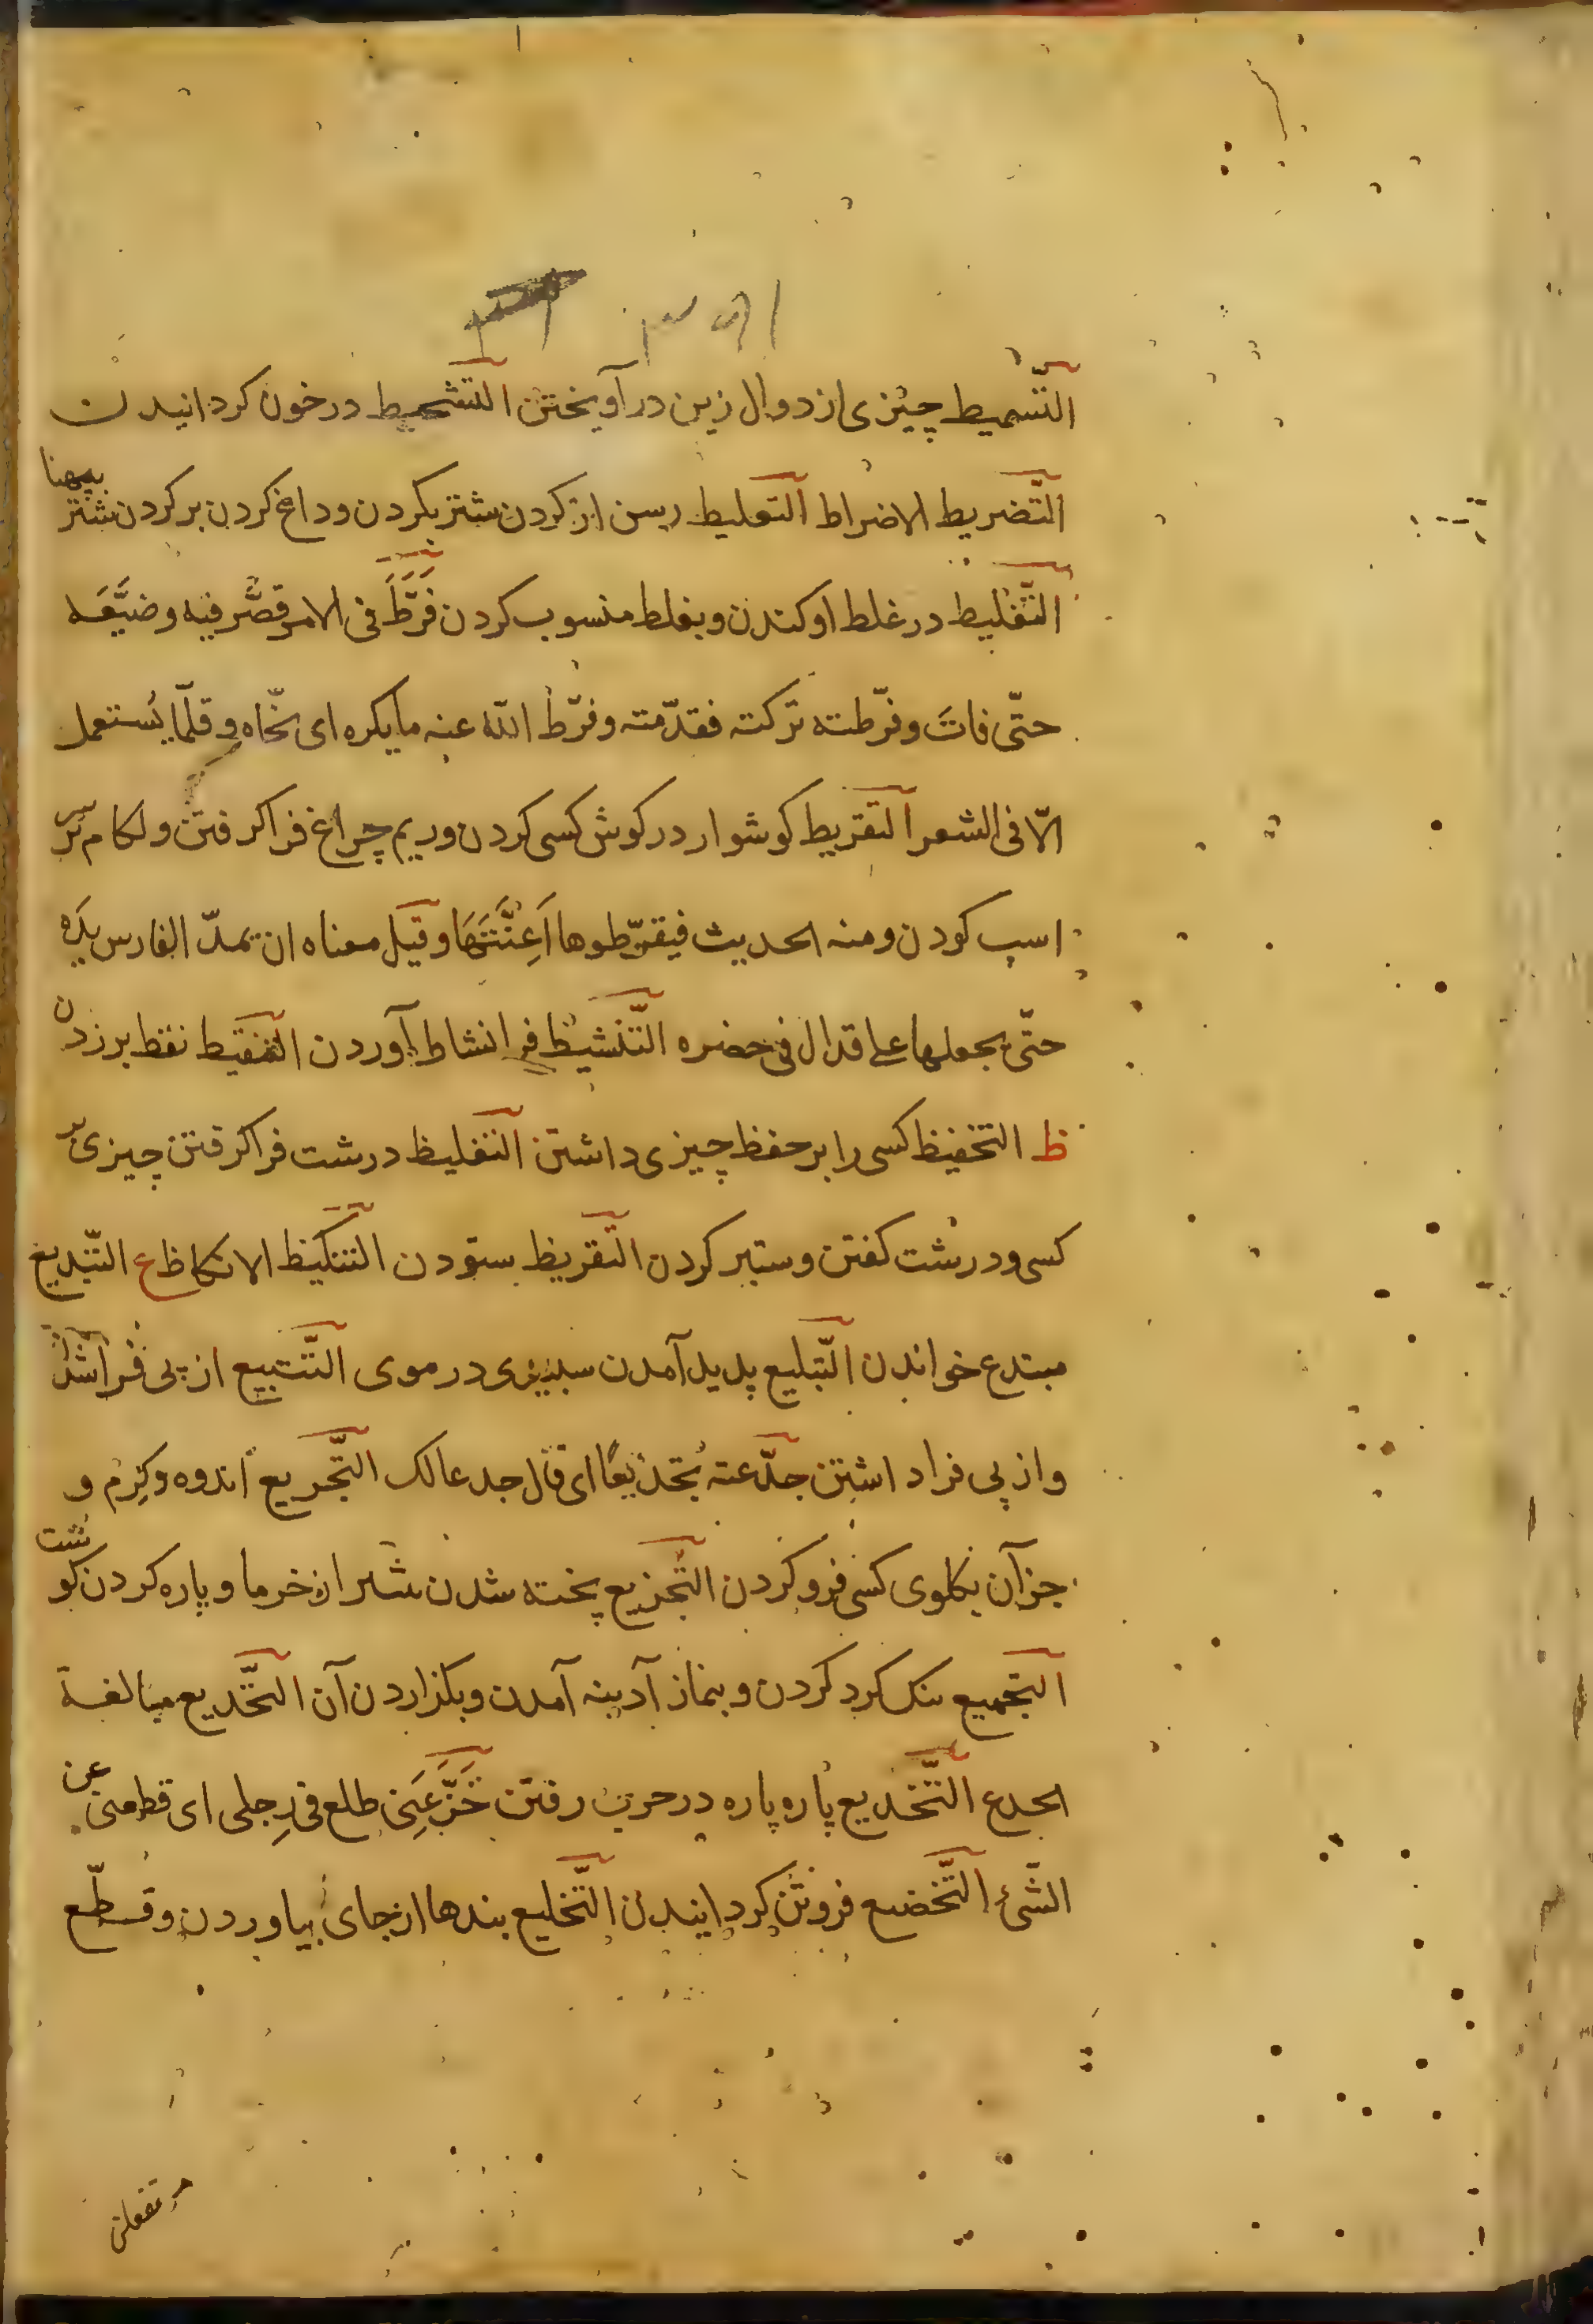 التّسميط چیزی از دوال زین در آویختن التشحیط در خون کردانیدن
التّضریط الاضراط التعلیط رسن از کردن شتر بکردن و داغ کردن بر کردن شتر بپهنا
التّغلیط در غلط اوکندن و بغلط منسوب کردن فَرَّطَ فی الامر قصَّر فیه وضیَّعَه
حتّی فاتَ وفرّطته ترکته فقدّمته وفرّط اللّه عنه مایکره ای نحّاه و قلّما یُستعمل
الّا فی الشعر التقریط کوشوار در کوش کسی کردن و ریم چراغ فرا کرفتن و لکام بر سر
اسب کودن ومنه الحدیث فیقرّطوها اَعِنَّتَهَا وقیل معناه ان یمدّ الفارس یدَه
حتّی یجعلها علی اقدال فی حضره التّنشیط فرا نشاط آوردن التنقیط نقط بر زدن
ظ التحفیظ کسی را بر حفظ چیزی داشتن التغلیظ درشت فرا کرفتن چیزی بر
کسی و درشت کفتن و ستبر کردن التّقریظ ستودن التنکیظ الانکاظ ع التّبدیع
مبتدع خواندن التّبلیع پدید آمدن سپیدی در موی التّتبیع از پی فرا شدن
و از پی فرا داشتن جدّعته تجدیعًا ای قال جدعا لک التّجریع اندوه و خزم و
جز آن بکلوی کسی فرو کردن التّجزیع پخته شدن نیمه از خرما و پاره کردن کوشت
التجمیع نیک کرد کردن و بنماز آدینه آمدن و بکزاردن آن التخّدیع مبالغة
الخدع التّخذیع پاره پاره در حرب رفتن خَزَّعَنِی ظلع فی رِجلی ای قطعنی عن
الشّیٔ التّخضع فروتن کردانیدن التّخلیع بندها از جای بیاوردن و قطّع